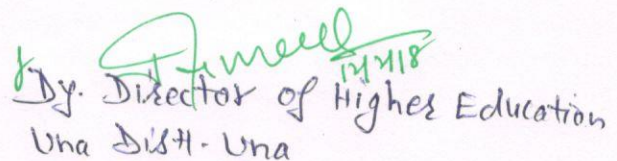 Dy. Director of Higher Education
Una Distt. Una